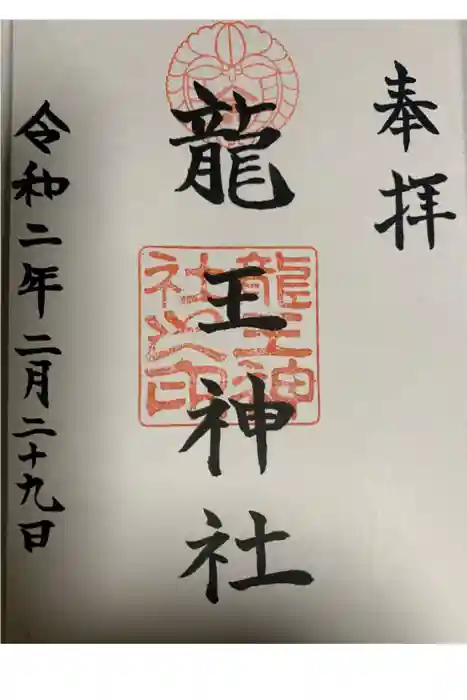 奉拝
龍王神社
龍王神
社之印
令和二年二月二十九日